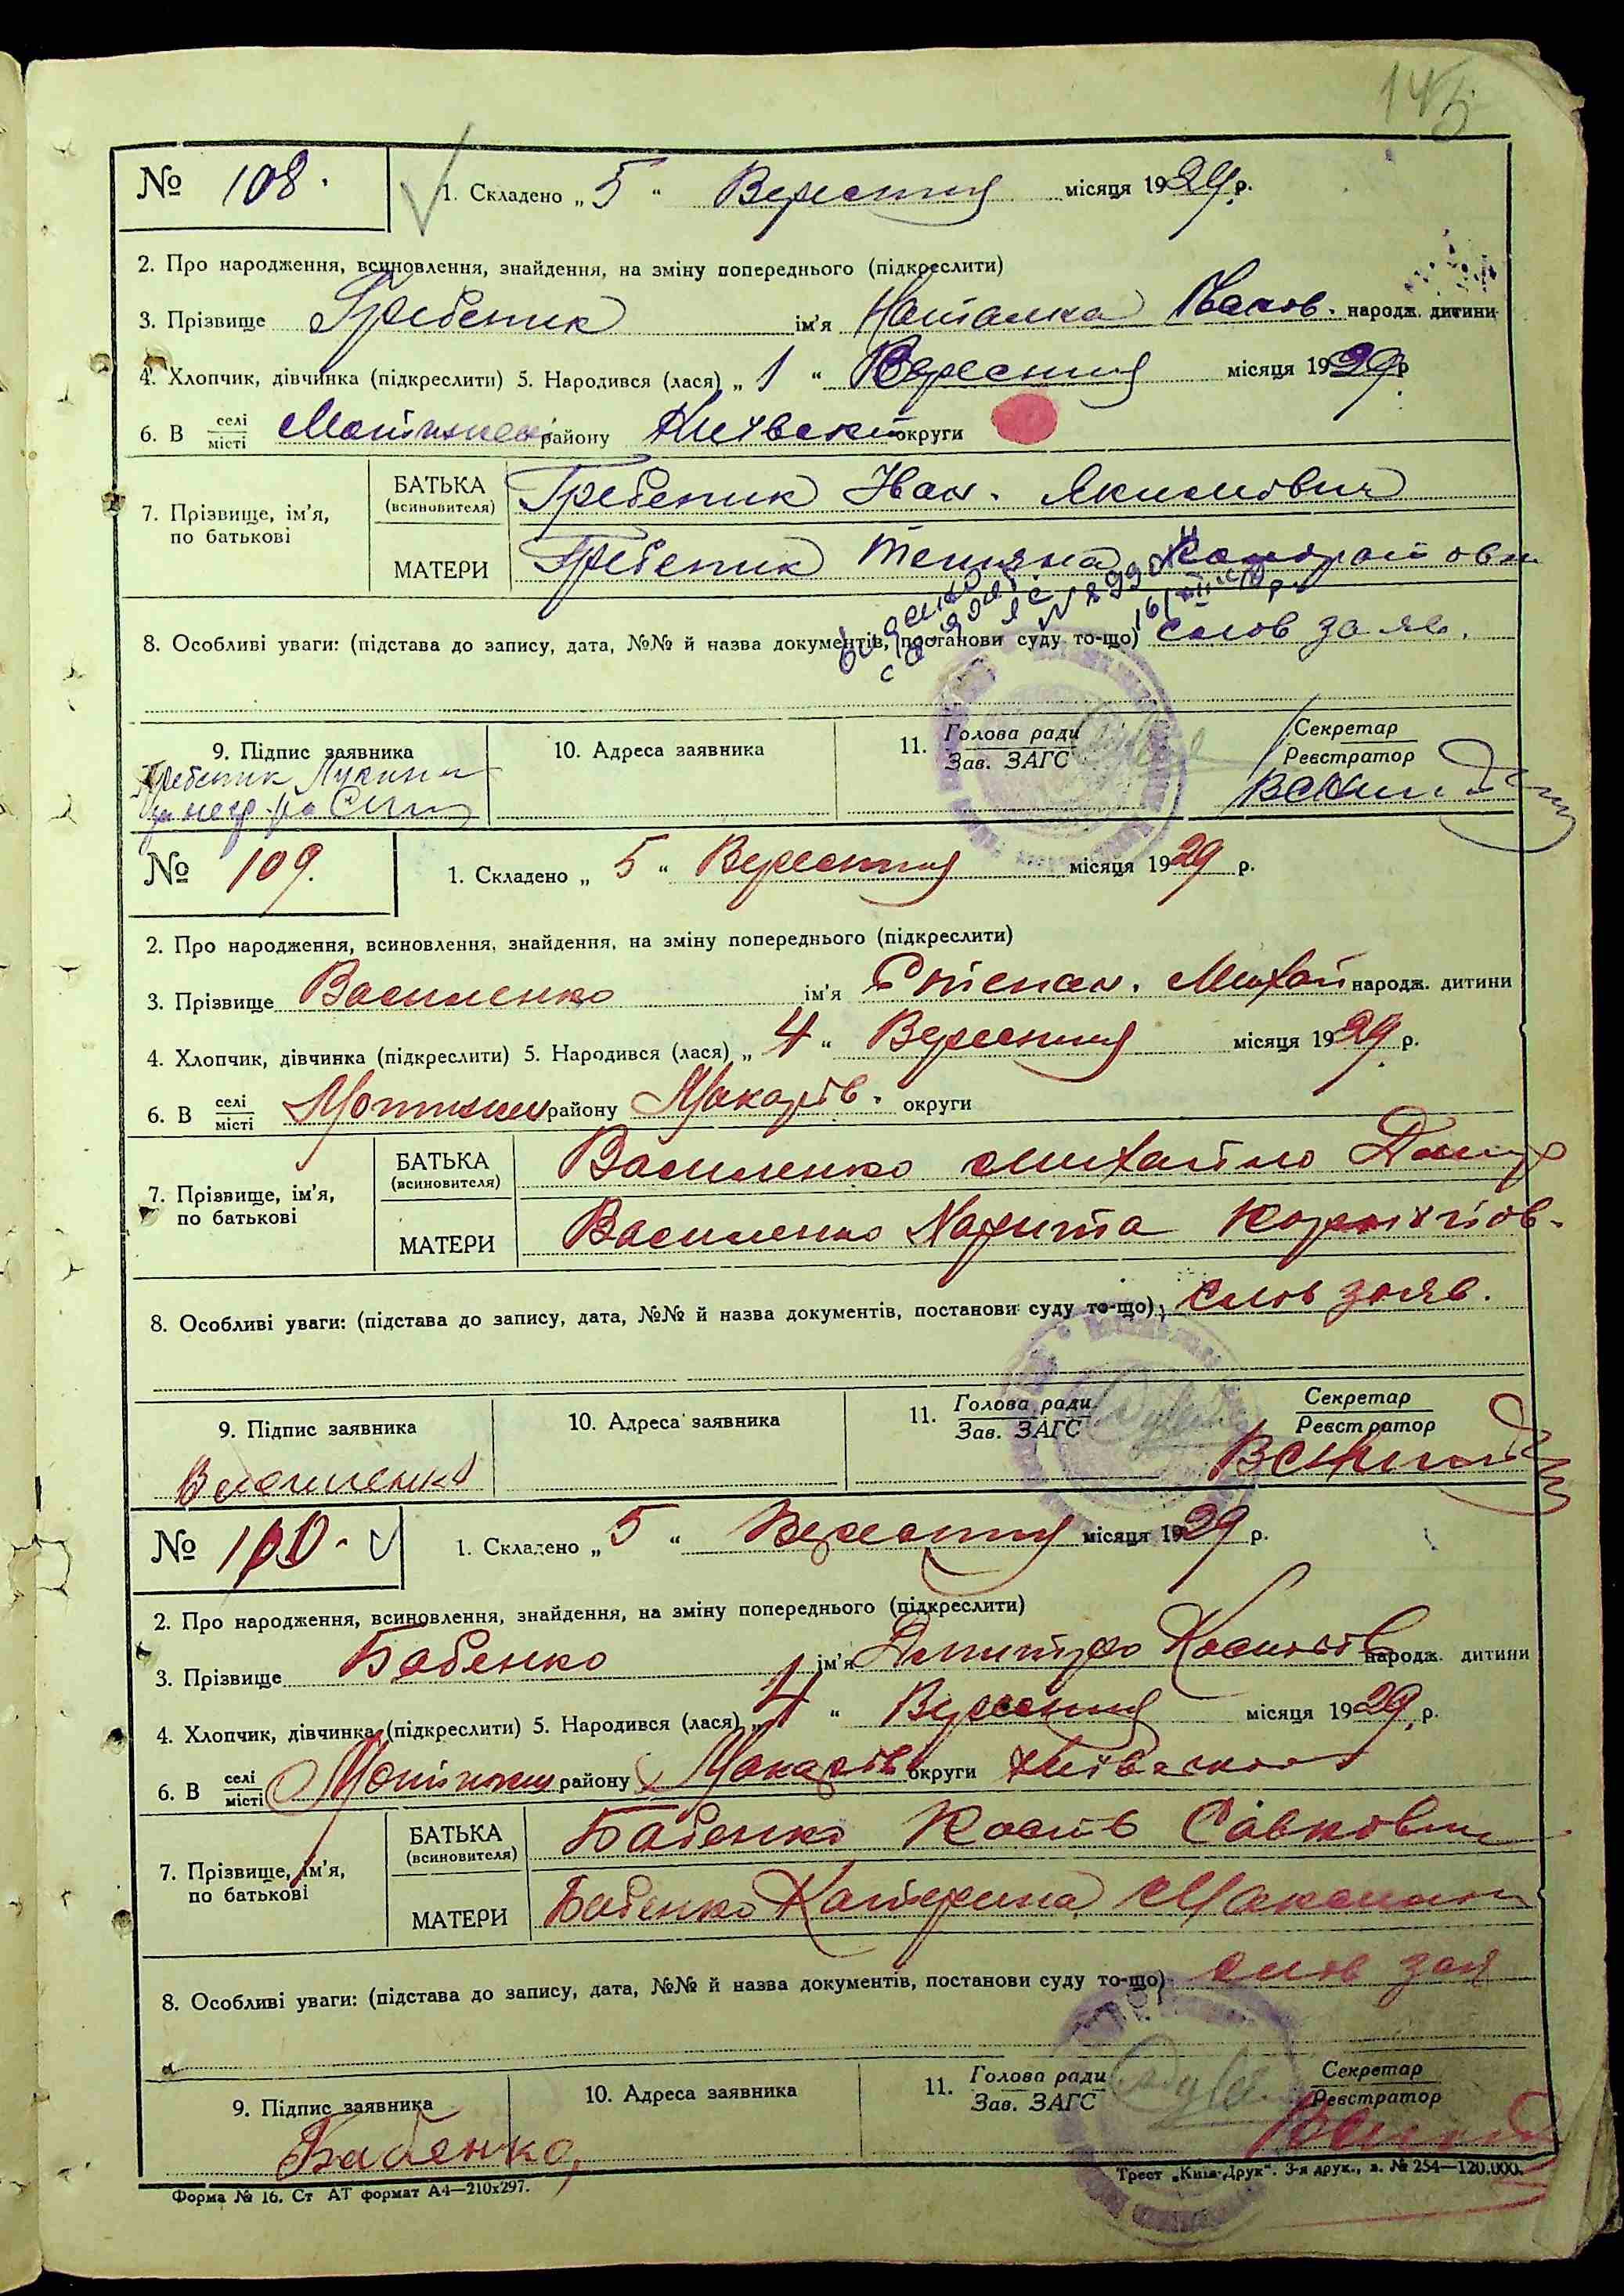 145
№ 108. 1. Складено „ 5 “ Вересния місяця 1929 р.
2. Про народження, всиновлення, знайдення, на зміну попереднього (підкреслити)
3. Прізвище Гребеник ім’я Наталка Іванов. народж. дитини
4. Хлопчик, дівчинка (підкреслити) 5. Народився (лася) „ 1 “ Вересния місяця 1929 р
6. В селі/місті Мотижен району Київської округи
7. Прізвище, ім’я, по батькові
БАТЬКА (всиновителя) Гребеник Іван. Якимович
МАТЕРИ Гребеник Тетяна
8. Особливі уваги: (підстава до запису, дата, №№ й назва документів, постанови суду то-що) слов заяв.
9. Підпис заявника 10. Адреса заявника 11. Голова ради Секретар
Зав. ЗАГС Реєстратор
Гребеник
№ 109. 1. Складено „ 5 “ Вересния місяця 1929 р.
2. Про народження, всиновлення, знайдення, на зміну попереднього (підкреслити)
3. Прізвище Василенко ім’я Степан. Михай народж. дитини
4. Хлопчик, дівчинка (підкреслити) 5. Народився (лася) „ 4 “ Вересния місяця 1929 р.
6. В селі/місті Мотижин району Макарів. округи
7. Прізвище, ім’я, по батькові
БАТЬКА (всиновителя) Василенко Михайло
МАТЕРИ Василенко Харитя
8. Особливі уваги: (підстава до запису, дата, №№ й назва документів, постанови суду то-що) слов заяв.
9. Підпис заявника 10. Адреса заявника 11. Голова ради Секретар
Зав. ЗАГС Реєстратор
Василенко
№ 110. 1. Складено „ 5 “ Вересния місяця 1929 р.
2. Про народження, всиновлення, знайдення, на зміну попереднього (підкреслити)
3. Прізвище Бабенко ім’я Дмитро Костьов народж. дитини
4. Хлопчик, дівчинка (підкреслити) 5. Народився (лася) „ 4 “ Вересния місяця 1929 р.
6. В селі/місті Мотижин району Макарів округи Київської
7. Прізвище, ім’я, по батькові
БАТЬКА (всиновителя) Бабенко Кость Савкович
МАТЕРИ Бабенко Катерина Максим
8. Особливі уваги: (підстава до запису, дата, №№ й назва документів, постанови суду то-що) слов зая
9. Підпис заявника 10. Адреса заявника 11. Голова ради Секретар
Зав. ЗАГС Реєстратор
Бабенко,
Форма № 16. Ст АТ формат А4—210х297. Трест „Київ-Друк“. 3-я друк., з. № 254—120.000.